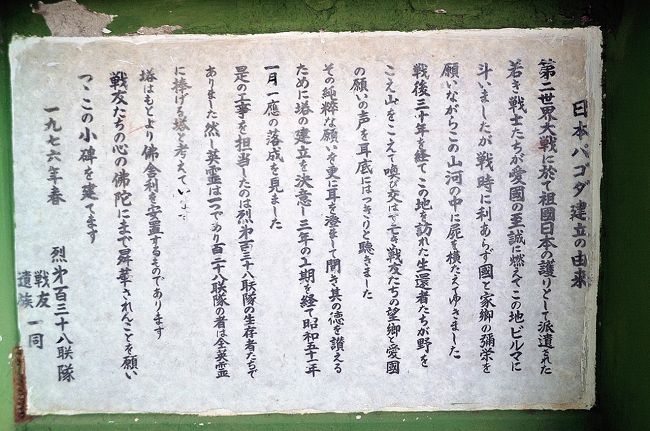 日本パゴダ建立の由来
第二世界大戦に於て祖國日本の護りとして派遣された
若き戦士たちが愛國の至誠に燃えてこの地ビルマに
斗いましたが戦時に利あらず國と家郷の彌栄を
願いながらこの山河の中に屍を横たえてゆきました
戦後三十年を経てこの地を訪れた生還者たちが野を
こえ山をこえて喚び交はす亡き戦友たちの望郷と愛國
の願いの声を耳底にはっきりと聴きました
その純粋な願いを更に耳を澄まして聞き其の徳を讃える
ために塔の建立を決意し三年の工期を経て昭和五十一年
一月一應の落成を見ました
是の工事を担当したのは烈第百三十八联隊の生存者たちで
ありました然し英霊は一つであり百三十八联隊の者は全英霊
に捧げる塔と考えています
塔はもとより佛舎利を安置するものであります
戦友たちの心の佛陀にまで昇華されんことを願い
つゝこの小碑を建てます
一九七六年春
烈第百三十八联隊
戦友
遺族一同